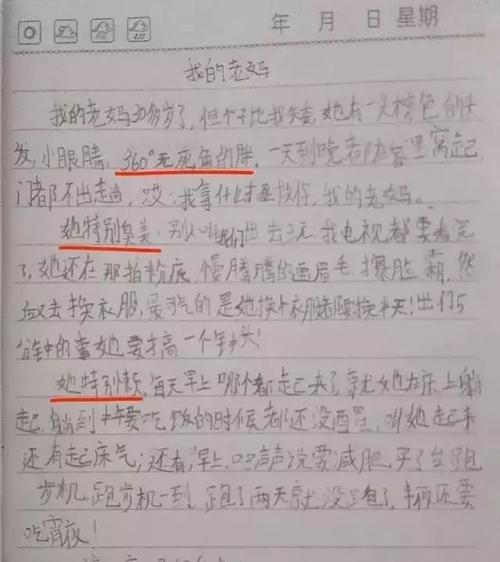 年 月 日 星期
我的老妈
我的老妈30多岁了，但个子比我矮，她有一头棕色的头
发，小眼睛，360°无死角的胖，一天到晚都在家里窝起，
门都不出走尚，哎，我拿什么拯救你，我的老妈。
她特别臭美，别人叫我们出去玩，我电视都要看完
了，她还在那拍粉底，慢腾腾的画眉毛，擦脸霜，然
后又去换衣服，最气的是她换个衣服都要换半天！出门5
分钟的事她要搞一个钟头！
她特别懒，每天早上哪个都起来了就她在床上躺
起，躺到中午要吃饭的时候都还没醒，叫她起来
还有起床气；还有，早上口口声声说要减肥，买了台跑
步机，跑步机一到，跑了两天就没跑了，半夜还要
吃宵夜！